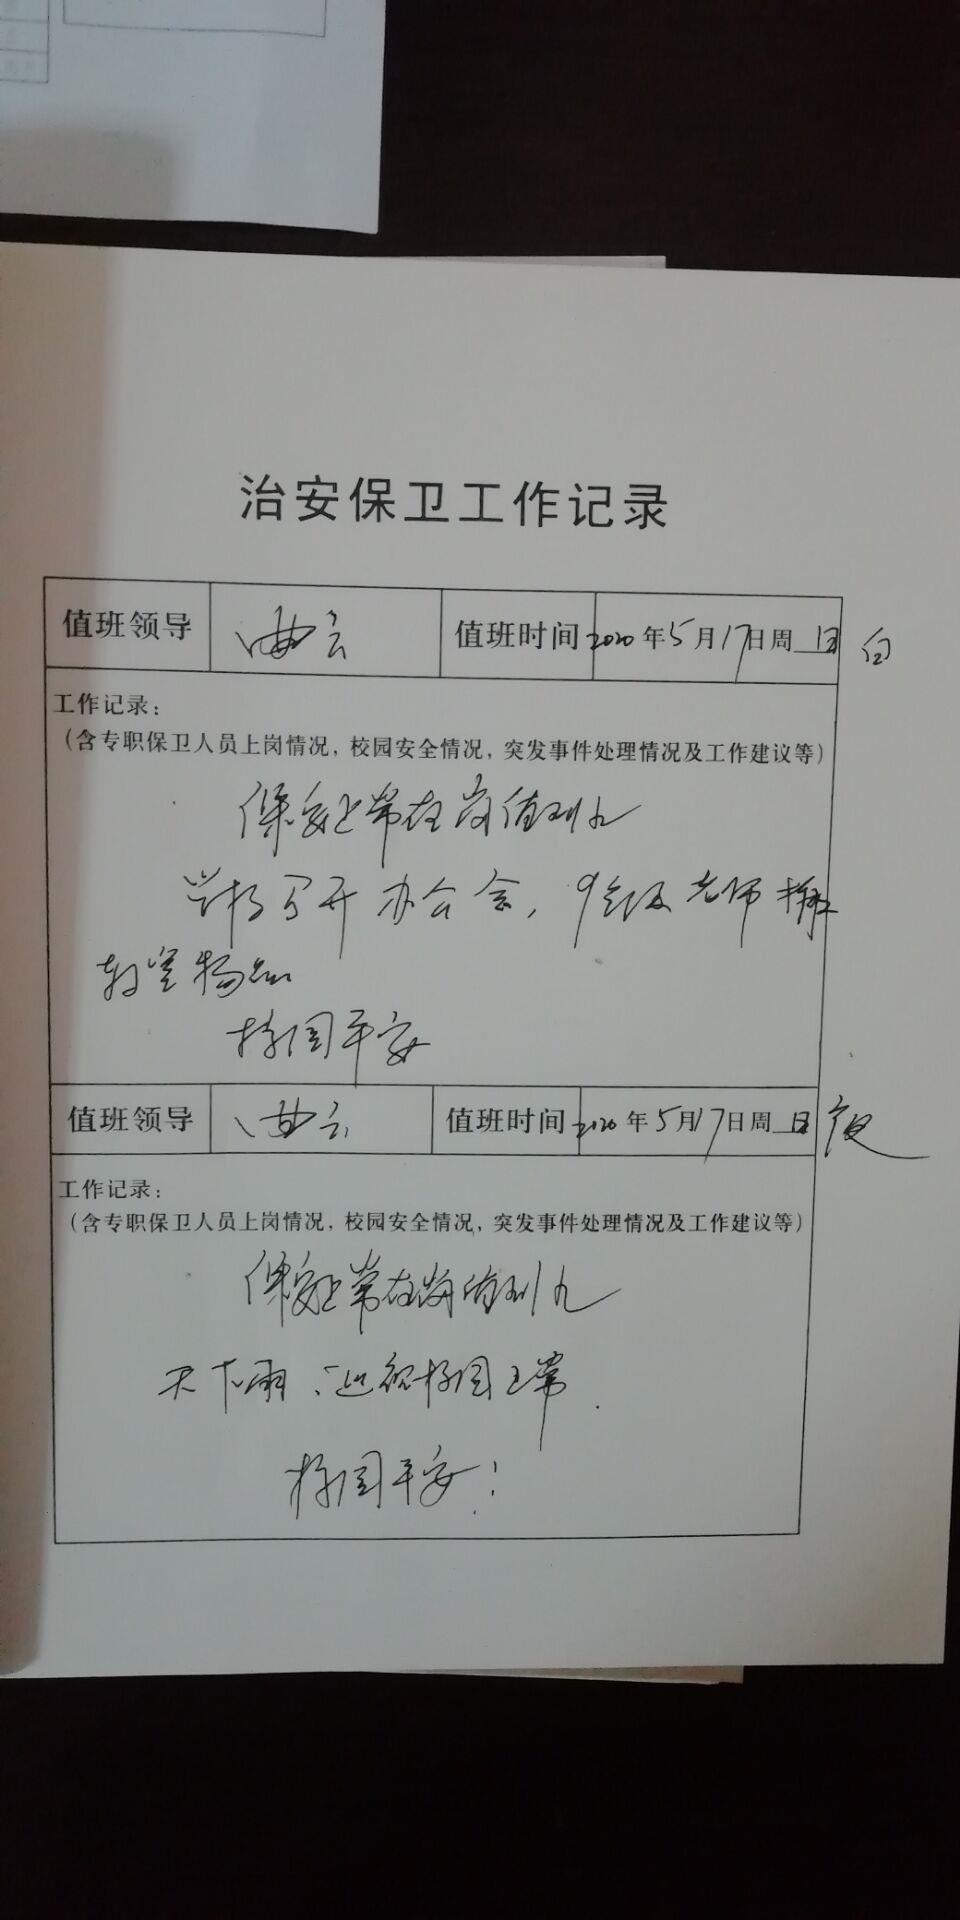 治安保卫工作记录
值班领导 曲云 值班时间 2020年5月17日周日 白
工作记录:
(含专职保卫人员上岗情况,校园安全情况,突发事件处理情况及工作建议等)
保安正常在岗值
开办公会,9年级老师搬
教室物品
校园平安
值班领导 曲云 值班时间 2020年5月17日周日 夜
工作记录:
(含专职保卫人员上岗情况,校园安全情况,突发事件处理情况及工作建议等)
保安正常在岗值
天下雨,巡视校园正常.
校园平安!